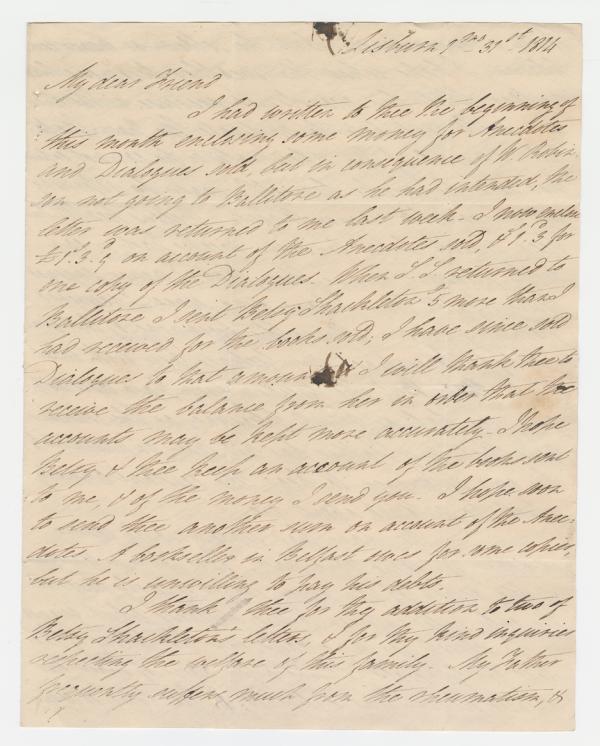 Lisburn 1mo 31st 1814
My dear Friend
I had written to thee the beginning of
this month enclosing some money for Anecdotes
and Dialogues sold, but in consequence of W. Robin-
son not going to Ballitore as he had intended, the
letter was returned to me last week. I now enclose
on account of the Anecdotes sold, & for
one copy of the Dialogues. When returned to
Ballitore I sent Betsy Shackleton 5 more than I
had received for the books sold; I have since sold
Dialogues to that amount I will thank thee to
receive the balance from her in order that the
accounts may be kept more accurately. I hope
Betsy & thee keep an account of the books sent
to me, & of the money I send you. I hope soon
to send thee another sum on account of the Anec-
dotes. A bookseller in Belfast owes for some copies,
but he is unwilling to pay his debts.
I thank thee for thy addition to two of
Betsy Shackleton's letters, & for thy kind inquiries
respecting the welfare of this family. My Father
frequently suffers much from the rheumatism, &